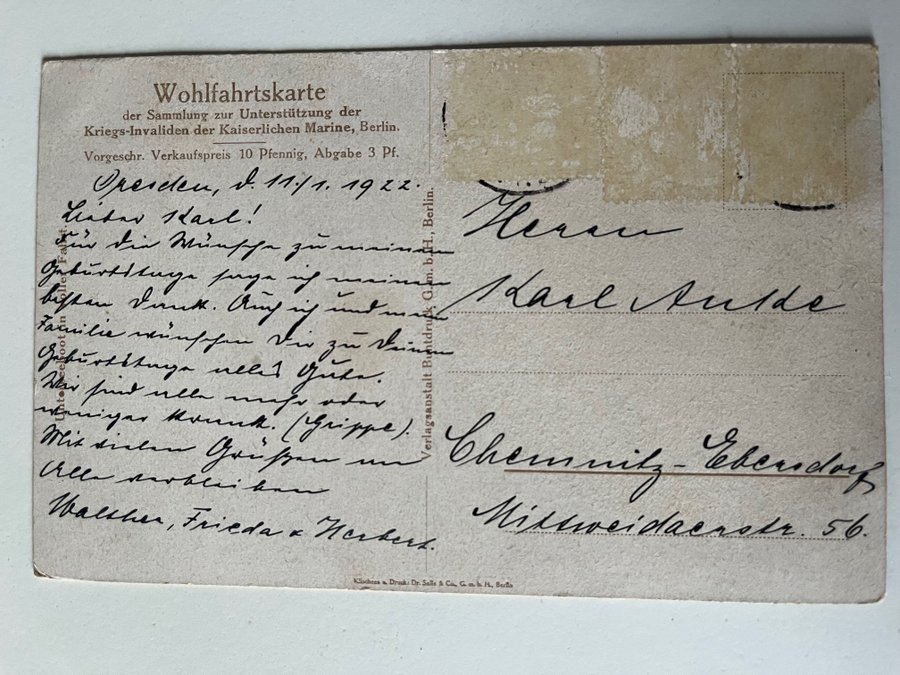 Wohlfahrtskarte
der Sammlung zur Unterstützung der
Kriegs-Invaliden der Kaiserlichen Marine, Berlin.
Vorgeschr. Verkaufspreis 10 Pfennig, Abgabe 3 Pf.
Dresden, d. 11./1. 1922.
Lieber Karl!
Für die Wünsche zu meinem
Geburtstage sage ich meinen
besten Dank. Auch ich und mein
Familie wünschen Dir zu Deinem
Geburtstage alles Gute.
Wir sind alle mehr oder
weniger krank. (Grippe).
Mit vielen Grüßen an
Alle verbleiben
Walther, Frieda & Herbert.
Unterseeboot in voller Fahrt.
Verlagsanstalt Buntdruck G. m. b. H., Berlin.
Herrn
Karl Anke
Chemnitz-Ebersdorf
Mittweidaerstr. 56.
Klischees u. Druck: Dr. Selle & Co., G. m. b. H., Berlin